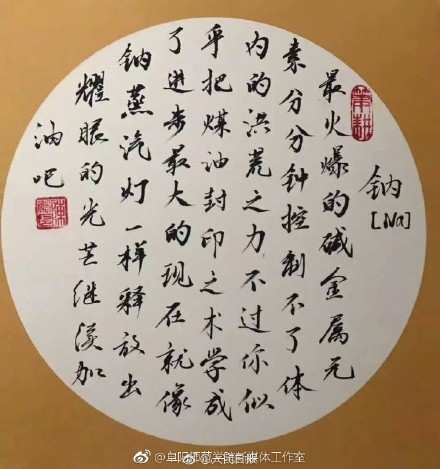 钠
[Na]
最火爆的碱金属元
素分分钟控制不了体
内的洪荒之力不过你似
乎把煤油封印之术学成
了进步最大的现在就像
钠蒸汽灯一样释放出
耀眼的光芒继续加
油吧
@阜阳师范学院新媒体工作室